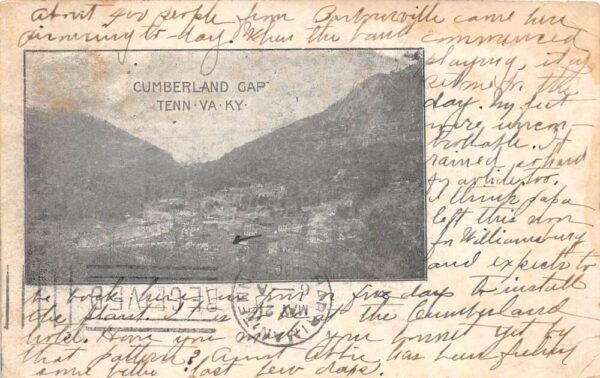 About 400 people from Barbourville came here
to day. When the band commenced
playing, it
the
day. My feet
were uncon-
trollable. It
rained so hard
for awhile, too.
I think papa
left this noon
for Williamsburg
and expects to
be back here in four or five days to install
the plant. the Cumberland
hotel. Have you your bonnet yet by
that pattern? Aunt Abbie has been feeling
some better last few days.
CUMBERLAND GAP
TENN · VA · KY ·
RECEIVED
MAY 21